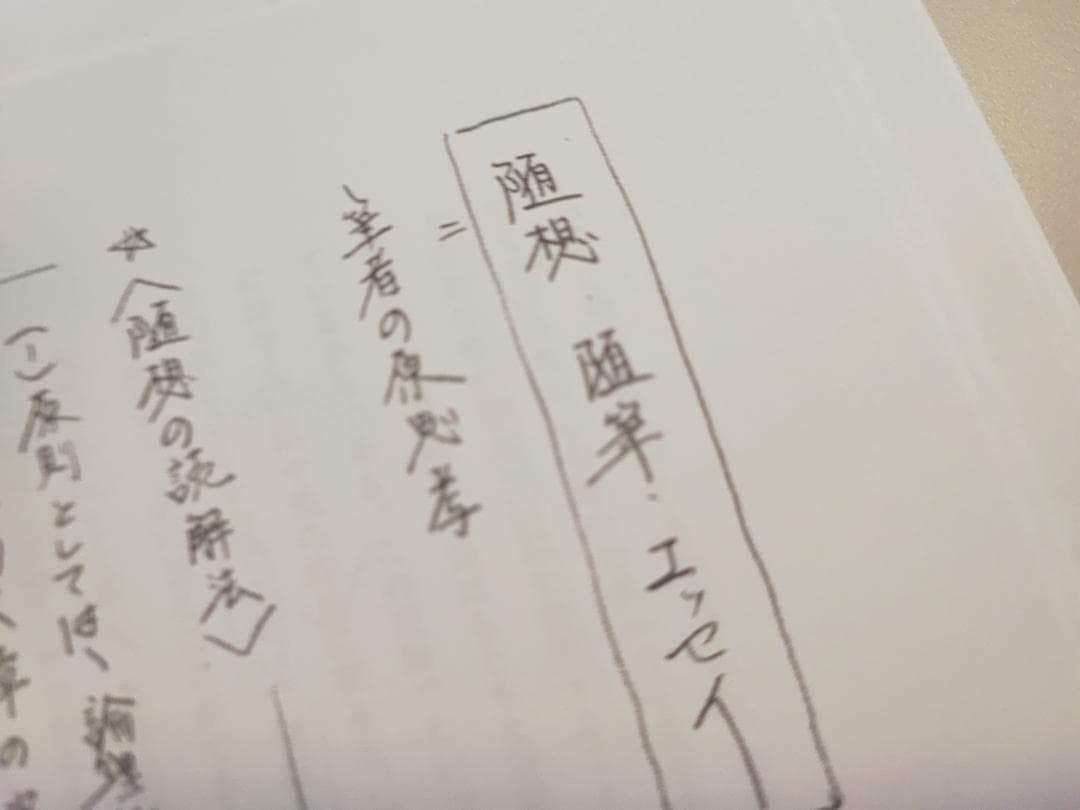 随想・随筆・エッセイ
=
筆者の原則
☆〈随想の読解法〉
(一)原則としては、論理
章の